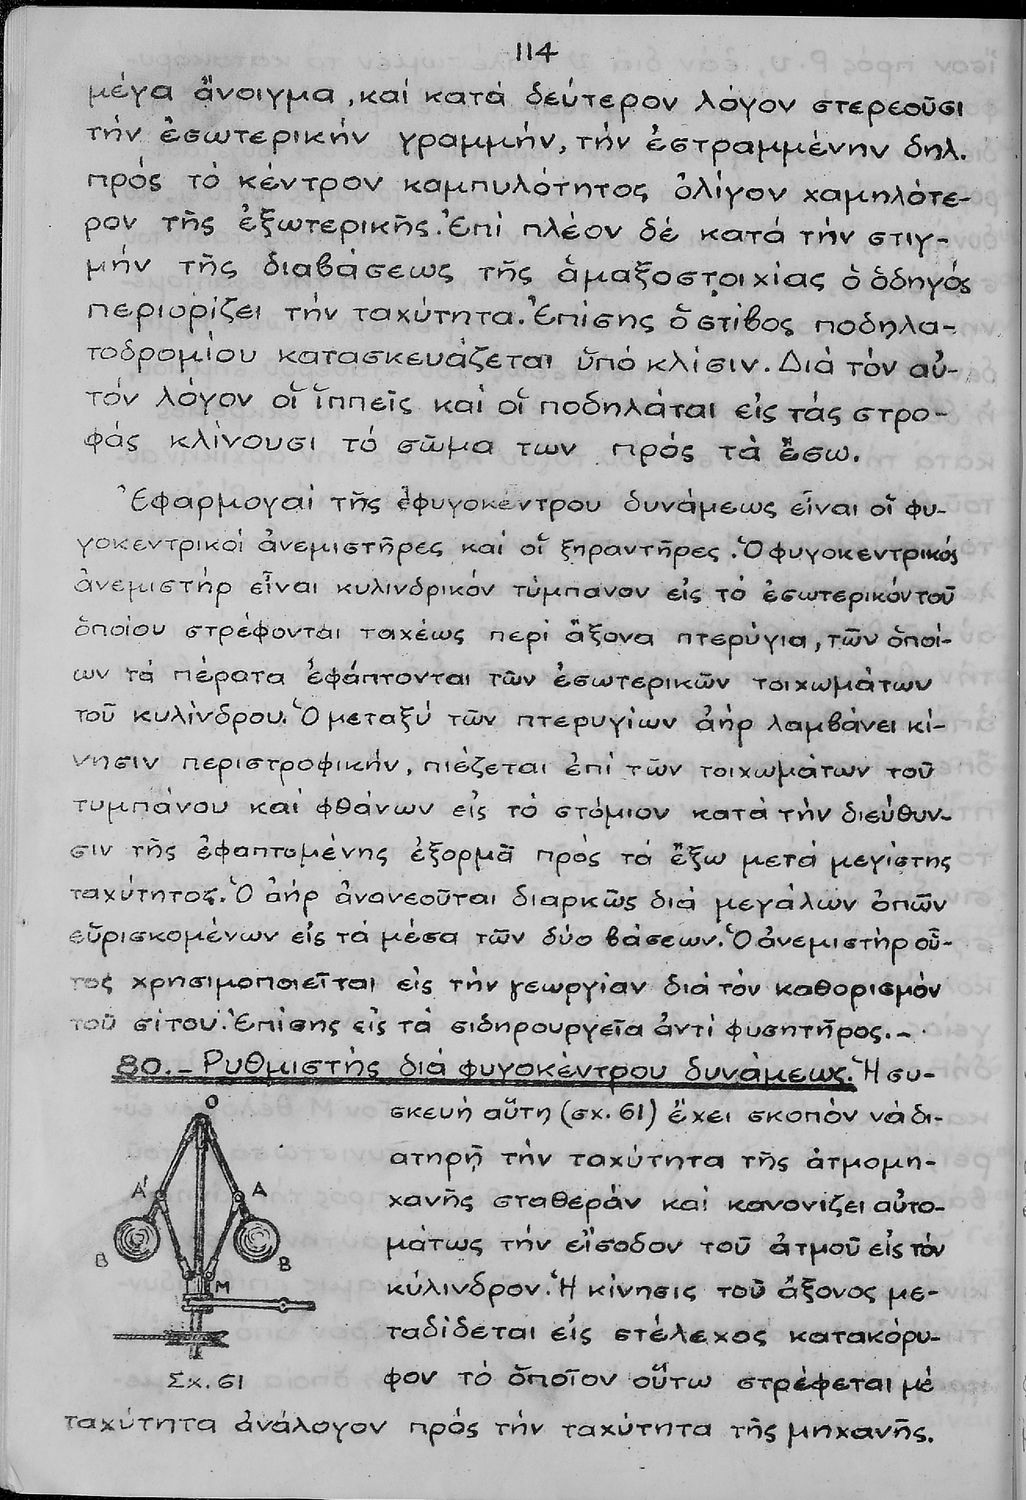 114
μέγα ἄνοιγμα, καί κατά δεύτερον λόγον στερεοῦσι
τήν ἐσωτερικήν γραμμήν, τήν ἐστραμμένην δηλ.
πρός τό κέντρον καμπυλότητος ὀλίγον χαμηλότε-
ρον τῆς ἐξωτερικῆς. Ἐπί πλέον δέ κατά τήν στιγ-
μήν τῆς διαβάσεως τῆς ἁμαξοστοιχίας ὁ ὁδηγός
περιορίζει τήν ταχύτητα. Ἐπίσης ὁ στίβος ποδηλα-
τοδρομίου κατασκευάζεται ὑπό κλίσιν. Διά τόν αὐ-
τόν λόγον οἱ ἱππεῖς καί οἱ ποδηλάται εἰς τάς στρο-
φάς κλίνουσι τό σῶμα των πρός τά ἔσω.
Ἐφαρμογαί τῆς ἐφυγοκέντρου δυνάμεως εἶναι οἱ φυ-
γοκεντρικοί ἀνεμιστῆρες καί οἱ ξηραντῆρες. Ὁ φυγοκεντρικός
ἀνεμιστήρ εἶναι κυλινδρικόν τύμπανον εἰς τό ἐσωτερικόν τοῦ
ὁποίου στρέφονται ταχέως περί ἄξονα πτερύγια, τῶν ὁποί-
ων τά πέρατα ἐφάπτονται τῶν ἐσωτερικῶν τοιχωμάτων
τοῦ κυλίνδρου. Ὁ μεταξύ τῶν πτερυγίων ἀήρ λαμβάνει κί-
νησιν περιστροφικήν, πιέζεται ἐπί τῶν τοιχωμάτων τοῦ
τυμπάνου καί φθάνων εἰς τό στόμιον κατά τήν διεύθυν-
σιν τῆς ἐφαπτομένης ἐξορμᾶ πρός τά ἔξω μετά μεγίστης
ταχύτητος. Ὁ ἀήρ ἀνανεοῦται διαρκῶς διά μεγάλων ὀπῶν
εὑρισκομένων εἰς τά μέσα τῶν δύο βάσεων. Ὁ ἀνεμιστήρ οὗ-
τος χρησιμοποιεῖται εἰς τήν γεωργίαν διά τόν καθορισμόν
τοῦ σίτου. Ἐπίσης εἰς τά σιδηρουργεῖα ἀντί φυσητῆρος.-
80.- Ρυθμιστής διά φυγοκέντρου δυνάμεως. Ἡ συ-
σκευή αὕτη (σχ. 61) ἔχει σκοπόν νά δι-
ατηρῇ τήν ταχύτητα τῆς ἀτμομη-
χανῆς σταθεράν καί κανονίζει αὐτο-
μάτως τήν εἴσοδον τοῦ ἀτμοῦ εἰς τόν
κύλινδρον. Ἡ κίνησις τοῦ ἄξονος με-
ταδίδεται εἰς στέλεχος κατακόρυ-
φον τό ὁποῖον οὕτω στρέφεται μέ
ταχύτητα ἀνάλογον πρός τήν ταχύτητα τῆς μηχανῆς.
O
A' A
B B
M
Σχ. 61